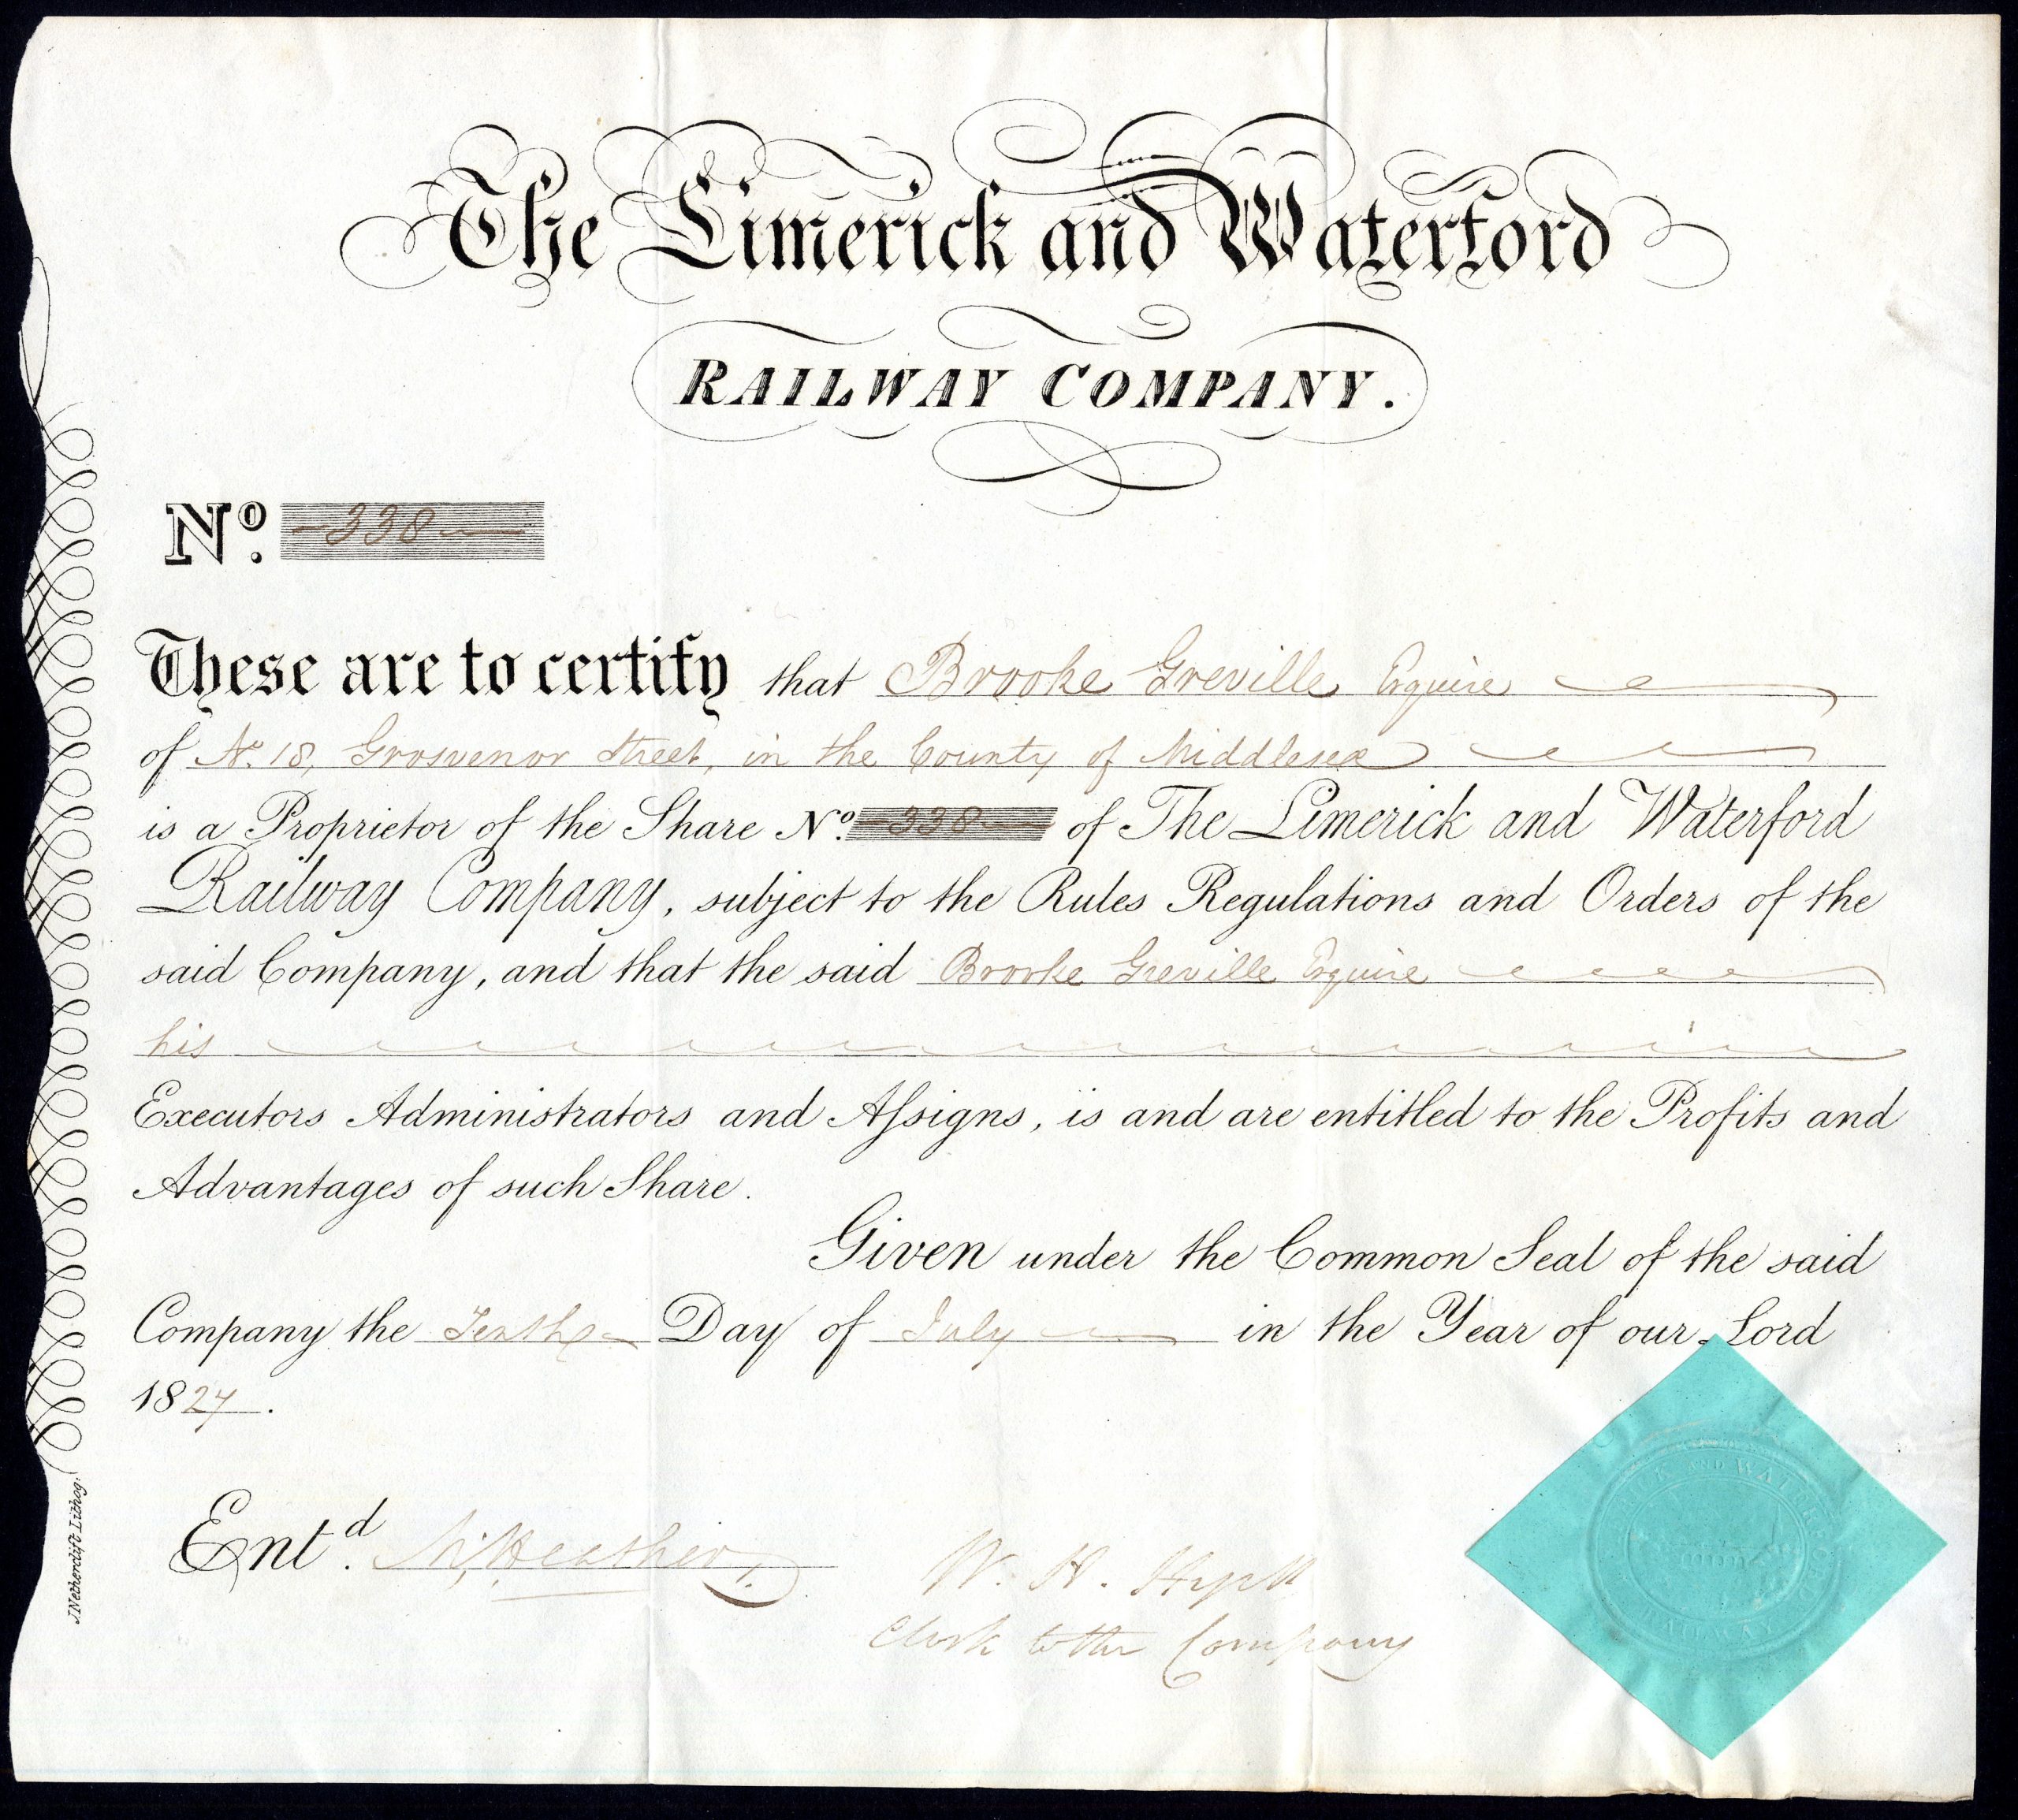 The Limerick and Waterford
RAILWAY COMPANY.
No. 338
These are to certify that Brooke Greville Esquire
of No. 18, Grosvenor Street, in the County of Middlesex
is a Proprietor of the Share No. 338 of The Limerick and Waterford
Railway Company, subject to the Rules Regulations and Orders of the
said Company, and that the said Brooke Greville Esquire
his
Executors Administrators and Aſsigns, is and are entitled to the Profits and
Advantages of such Share.
Given under the Common Seal of the said
Company the Tenth Day of July in the Year of our Lord
1827.
Entd.
W. H.
Clerk to the Company
J. Netherclift Lithog.
AND WATERFORD
RAILWAY